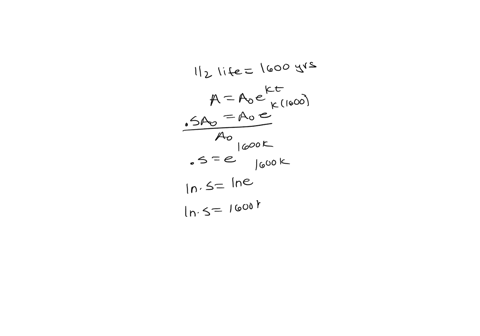 1/2 life = 1600 yrs
A = A₀e^kt
.5A₀ = A₀e^k(1600)
A₀
.5 = e^1600k
ln .5 = ln e^1600k
ln .5 = 1600k